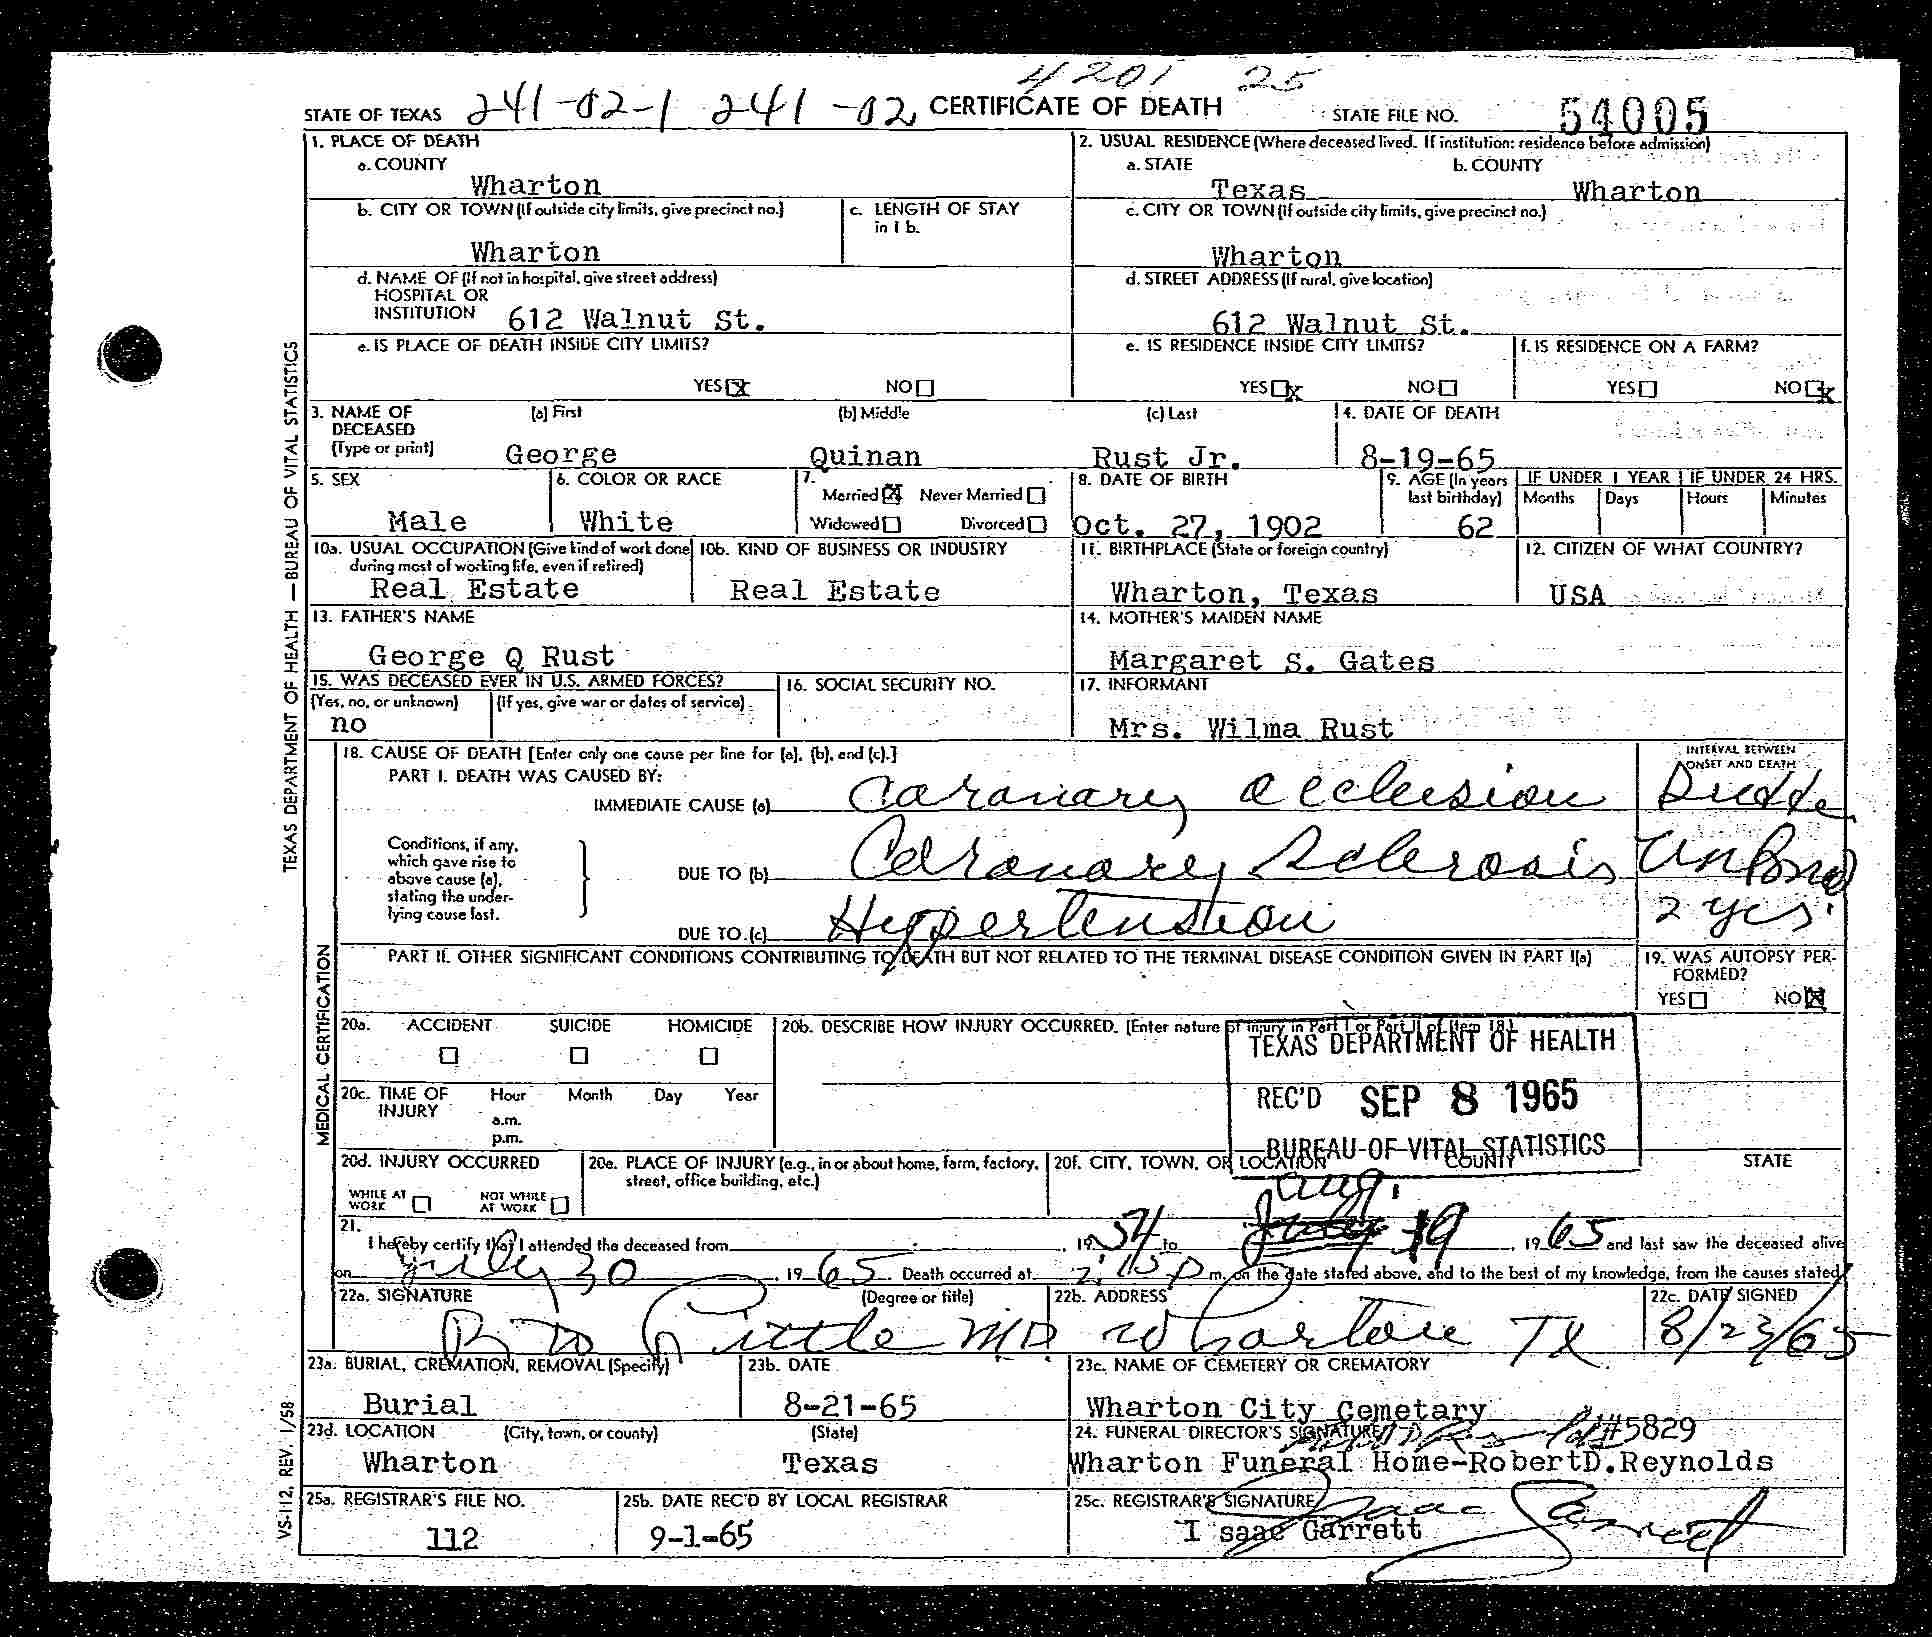 4201 25
STATE OF TEXAS 241-02-1 241-02 CERTIFICATE OF DEATH STATE FILE NO. 54005
1. PLACE OF DEATH
a. COUNTY
Wharton
2. USUAL RESIDENCE (Where deceased lived. If institution: residence before admission)
a. STATE b. COUNTY
Texas Wharton
b. CITY OR TOWN (If outside city limits, give precinct no.)
Wharton
c. LENGTH OF STAY
in 1 b.
c. CITY OR TOWN (If outside city limits, give precinct no.)
Wharton
d. NAME OF (If not in hospital, give street address)
HOSPITAL OR
INSTITUTION 612 Walnut St.
d. STREET ADDRESS (If rural, give location)
612 Walnut St.
e. IS PLACE OF DEATH INSIDE CITY LIMITS?
YES x NO
e. IS RESIDENCE INSIDE CITY LIMITS?
YES x NO
f. IS RESIDENCE ON A FARM?
YES NO x
3. NAME OF
DECEASED
(Type or print)
(a) First (b) Middle (c) Last
George Quinan Rust Jr.
4. DATE OF DEATH
8-19-65
5. SEX
Male
6. COLOR OR RACE
White
7.
Married x Never Married
Widowed Divorced
8. DATE OF BIRTH
Oct. 27, 1902
9. AGE (In years
last birthday)
62
IF UNDER 1 YEAR IF UNDER 24 HRS.
Months Days Hours Minutes
10a. USUAL OCCUPATION (Give kind of work done
during most of working life, even if retired)
Real Estate
10b. KIND OF BUSINESS OR INDUSTRY
Real Estate
11. BIRTHPLACE (State or foreign country)
Wharton, Texas
12. CITIZEN OF WHAT COUNTRY?
USA
13. FATHER'S NAME
George Q Rust
14. MOTHER'S MAIDEN NAME
Margaret S. Gates
15. WAS DECEASED EVER IN U.S. ARMED FORCES?
(Yes, no, or unknown) (If yes, give war or dates of service)
no
16. SOCIAL SECURITY NO.
17. INFORMANT
Mrs. Wilma Rust
18. CAUSE OF DEATH [Enter only one cause per line for (a), (b), and (c).]
PART I. DEATH WAS CAUSED BY:
IMMEDIATE CAUSE (a) Coronary occlusion
INTERVAL BETWEEN
ONSET AND DEATH
Conditions, if any,
which gave rise to
above cause (a),
stating the under-
lying cause last.
DUE TO (b) Coronary Sclerosis
DUE TO (c) Hypertension 2 yrs.
PART II. OTHER SIGNIFICANT CONDITIONS CONTRIBUTING TO DEATH BUT NOT RELATED TO THE TERMINAL DISEASE CONDITION GIVEN IN PART I(a)
19. WAS AUTOPSY PER-
FORMED?
YES NO x
20a. ACCIDENT SUICIDE HOMICIDE
20b. DESCRIBE HOW INJURY OCCURRED. (Enter nature of injury in Part I or Part II of Item 18.)
TEXAS DEPARTMENT OF HEALTH
REC'D SEP 8 1965
BUREAU OF VITAL STATISTICS
20c. TIME OF
INJURY
Hour Month Day Year
a.m.
p.m.
20d. INJURY OCCURRED
WHILE AT
WORK
NOT WHILE
AT WORK
20e. PLACE OF INJURY (e.g., in or about home, farm, factory,
street, office building, etc.)
20f. CITY, TOWN, OR LOCATION COUNTY STATE
21.
Aug.
I hereby certify that I attended the deceased from 1954 to July 19, 1965 and last saw the deceased alive
on July 30, 1965. Death occurred at 2:15 P m. on the date stated above, and to the best of my knowledge, from the causes stated.
22a. SIGNATURE (Degree or title)
Little MD
22b. ADDRESS
Wharton Tx
22c. DATE SIGNED
8/23/65
23a. BURIAL, CREMATION, REMOVAL (Specify)
Burial
23b. DATE
8-21-65
23c. NAME OF CEMETERY OR CREMATORY
Wharton City Cemetary
23d. LOCATION (City, town, or county) (State)
Wharton Texas
24. FUNERAL DIRECTOR'S SIGNATURE #5829
Wharton Funeral Home-RobertD.Reynolds
25a. REGISTRAR'S FILE NO.
112
25b. DATE REC'D BY LOCAL REGISTRAR
9-1-65
25c. REGISTRAR'S SIGNATURE
Isaac Garrett
I saac Garrett
TEXAS DEPARTMENT OF HEALTH — BUREAU OF VITAL STATISTICS
MEDICAL CERTIFICATION
VS-112, REV. 1/58